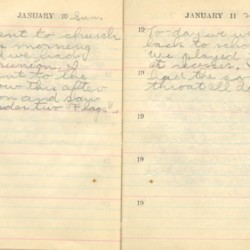 JANUARY 10 Sun.
ent to church
s morning
we had
union. I
nt to the
ow this after
on and saw
der two Flags".
JANUARY 11
19
To-day we w
back to
we played
at recess. I
had the so
throat all d
19
19
19